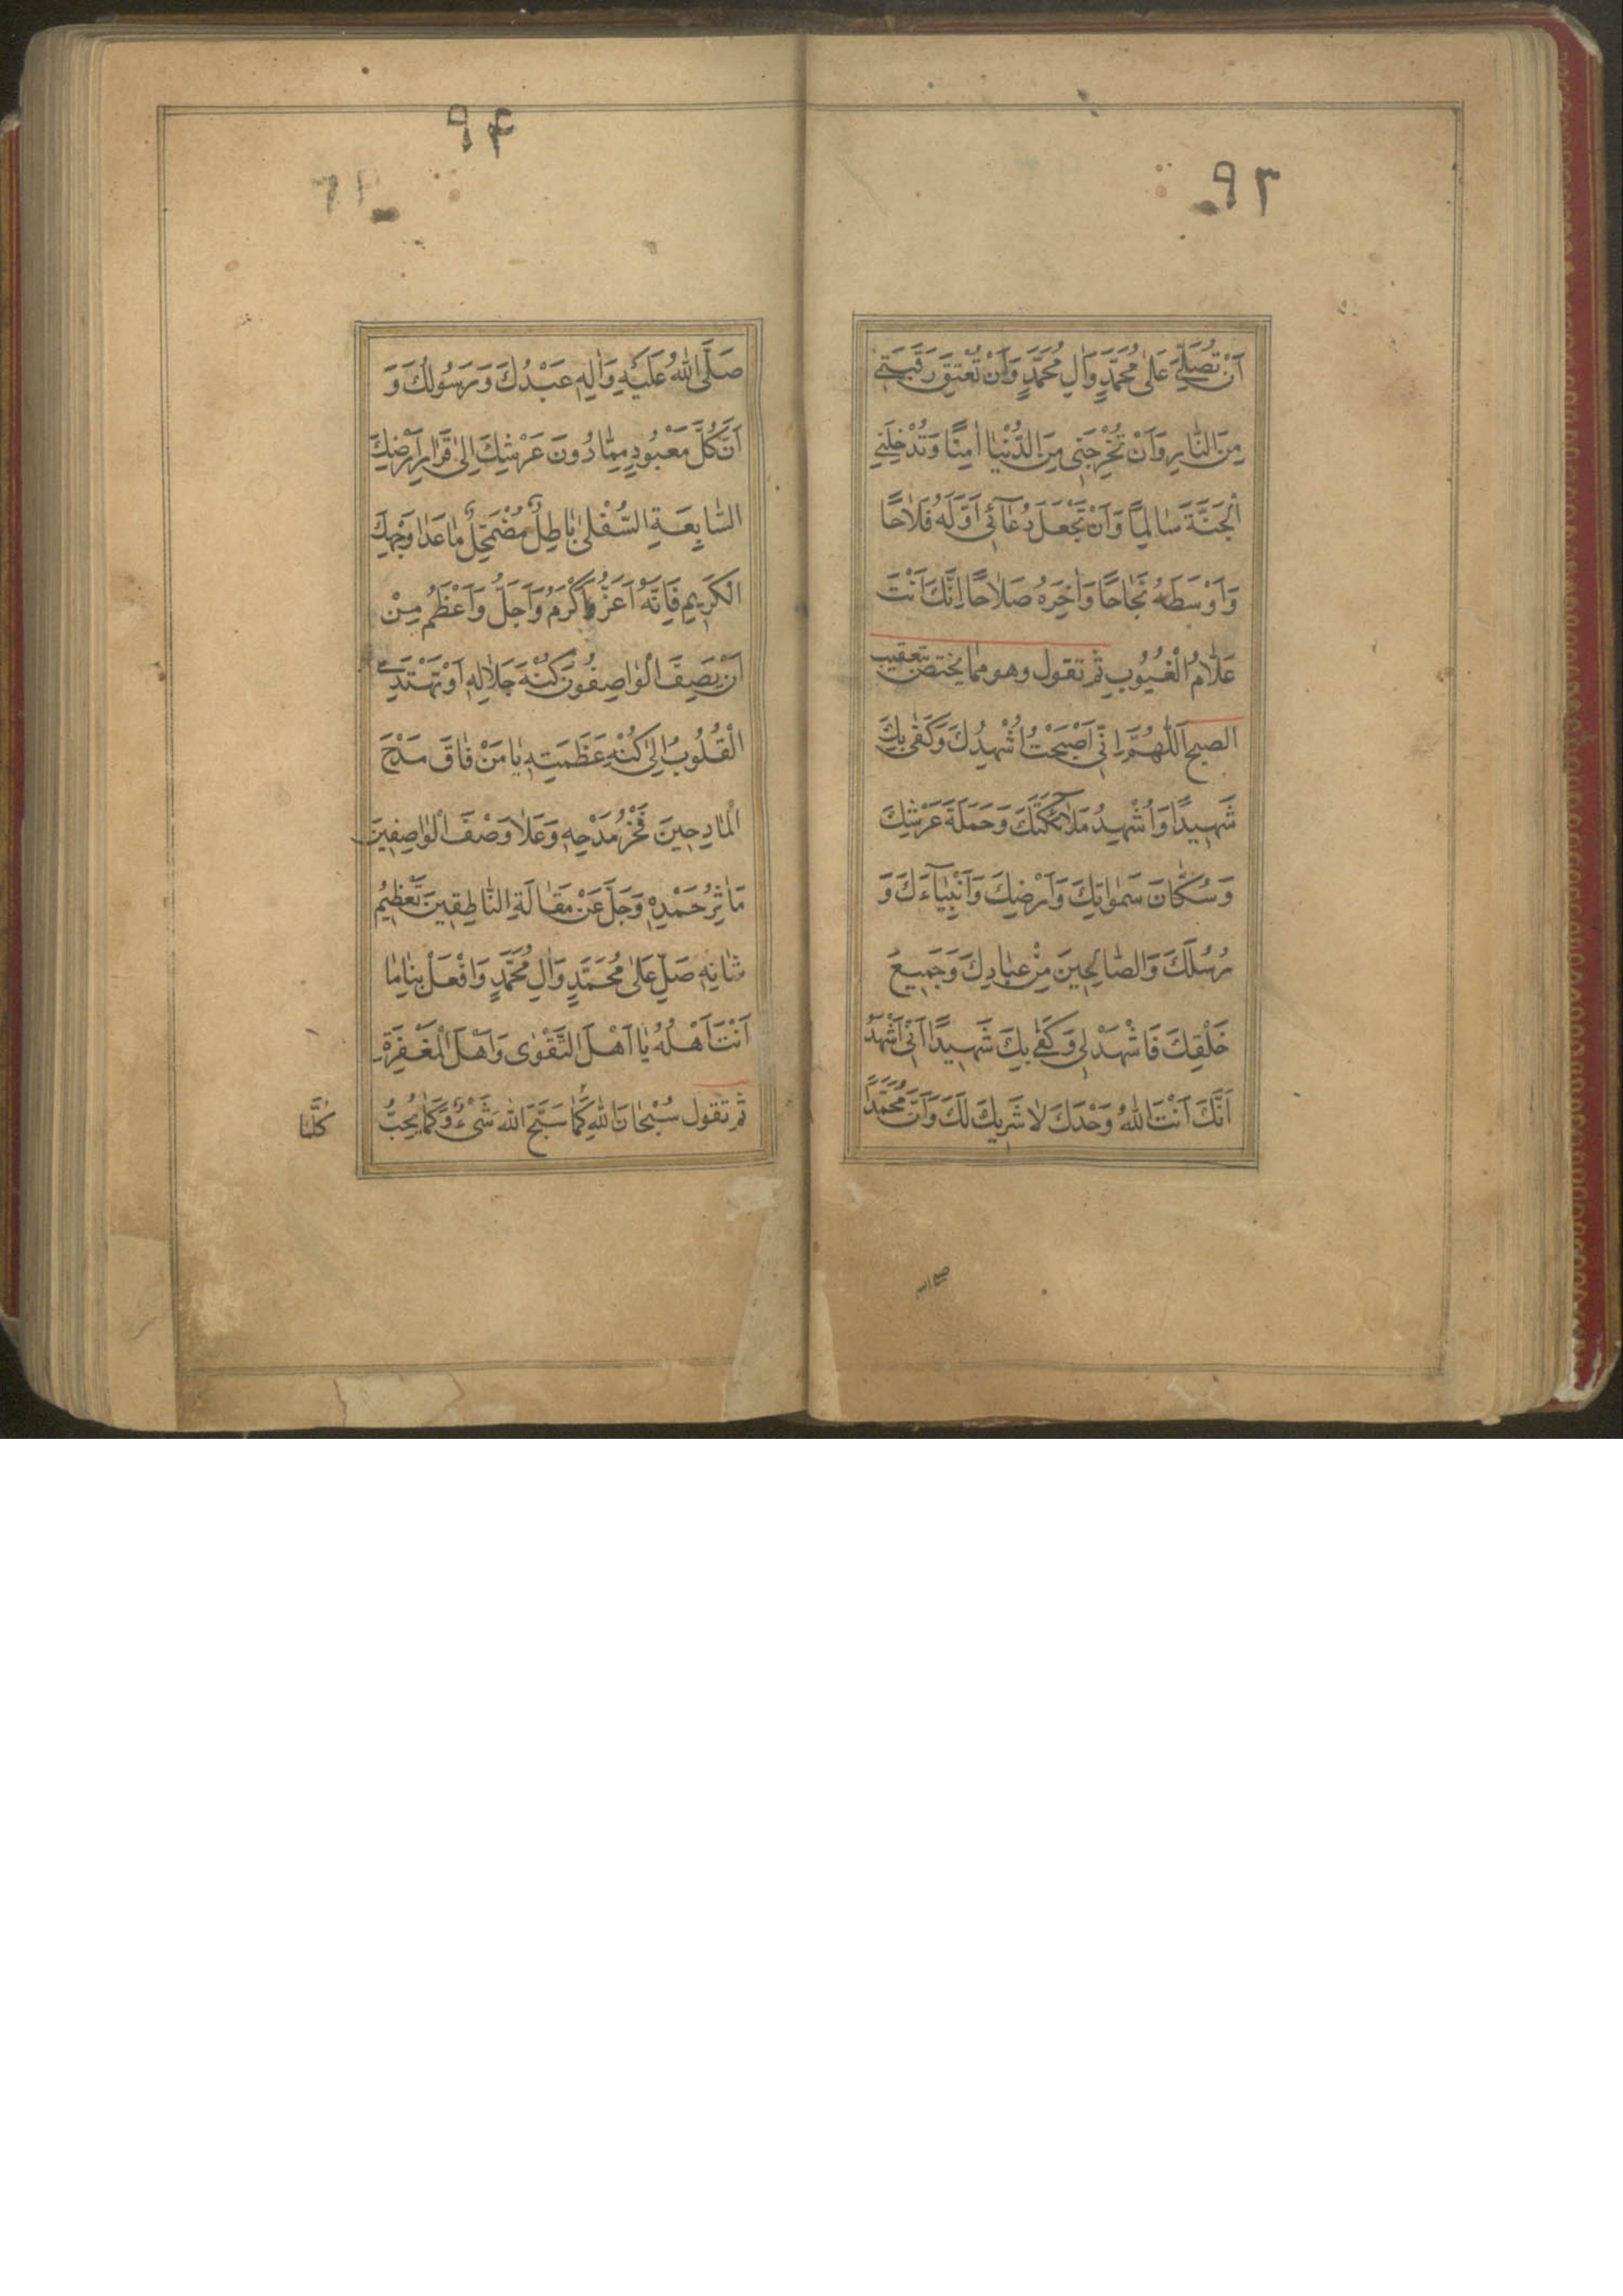 ۹۳
اَنْ تُصَلِّيَ عَلىٰ مُحَمَّدٍ وَاٰلِ مُحَمَّدٍ وَاَنْ تُعْتِقَ رَقَبَتِي
مِنَ النّٰارِ وَاَنْ تُخْرِجَنِي مِنَ الدُّنْيٰا اٰمِنًا وَتُدْخِلَنِي
الْجَنَّةَ سٰالِمًا وَاَنْ تَجْعَلَ دُعٰآئِي اَوَّلَهُ فَلٰاحًا
وَاَوْسَطَهُ نَجٰاحًا وَاٰخِرَهُ صَلٰاحًا اِنَّكَ اَنْتَ
عَلّٰامُ الْغُيُوبِ ثم تقول وهو مما يختص بتعقيب
الصبح اَللّٰهُمَّ اِنِّي اَصْبَحْتُ اُشْهِدُكَ وَكَفٰى بِكَ
شَهِيدًا وَاُشْهِدُ مَلٰآئِكَتَكَ وَحَمَلَةَ عَرْشِكَ
وَسُكّٰانَ سَمٰوٰاتِكَ وَاَرْضِكَ وَاَنْبِيٰآءَكَ وَ
رُسُلَكَ وَالصّٰالِحِينَ مِنْ عِبٰادِكَ وَجَمِيعَ
خَلْقِكَ فَاشْهَدْ لِي وَكَفٰى بِكَ شَهِيدًا اَنِّي اَشْهَدُ
اَنَّكَ اَنْتَ اللّٰهُ وَحْدَكَ لٰا شَرِيكَ لَكَ وَاَنَّ مُحَمَّدًا
۹۴
صَلَّى اللّٰهُ عَلَيْهِ وَاٰلِهِ عَبْدُكَ وَرَسُولُكَ وَ
اَنَّ كُلَّ مَعْبُودٍ مِمّٰا دُونَ عَرْشِكَ اِلىٰ قَرٰارِ اَرْضِكَ
السّٰابِعَةِ السُّفْلىٰ بٰاطِلٌ مُضْمَحِلٌّ مٰا عَدٰا وَجْهِكَ
الْكَرِيمِ فَاِنَّهُ اَعَزُّ وَاَكْرَمُ وَاَجَلُّ وَاَعْظَمُ مِنْ
اَنْ يَصِفَ الْوٰاصِفُونَ كُنْهَ جَلٰالِهِ اَوْ تَهْتَدِيَ
الْقُلُوبُ اِلىٰ كُنْهِ عَظَمَتِهِ يٰا مَنْ فٰاقَ مَدْحَ
الْمٰادِحِينَ فَخْرُ مَدْحِهِ وَعَلٰا وَصْفَ الْوٰاصِفِينَ
مَاٰثِرُ حَمْدِهِ وَجَلَّ عَنْ مَقٰالَةِ النّٰاطِقِينَ تَعْظِيمُ
شٰانِهِ صَلِّ عَلىٰ مُحَمَّدٍ وَاٰلِ مُحَمَّدٍ وَافْعَلْ بِنٰا مٰا
اَنْتَ اَهْلُهُ يٰا اَهْلَ التَّقْوٰى وَاَهْلَ الْمَغْفِرَةِ
ثم تقول سُبْحٰانَ اللّٰهِ كَمٰا سَبَّحَ اللّٰهَ شَيْءٌ وَكَمٰا يُحِبُّ
كُلَّمٰا